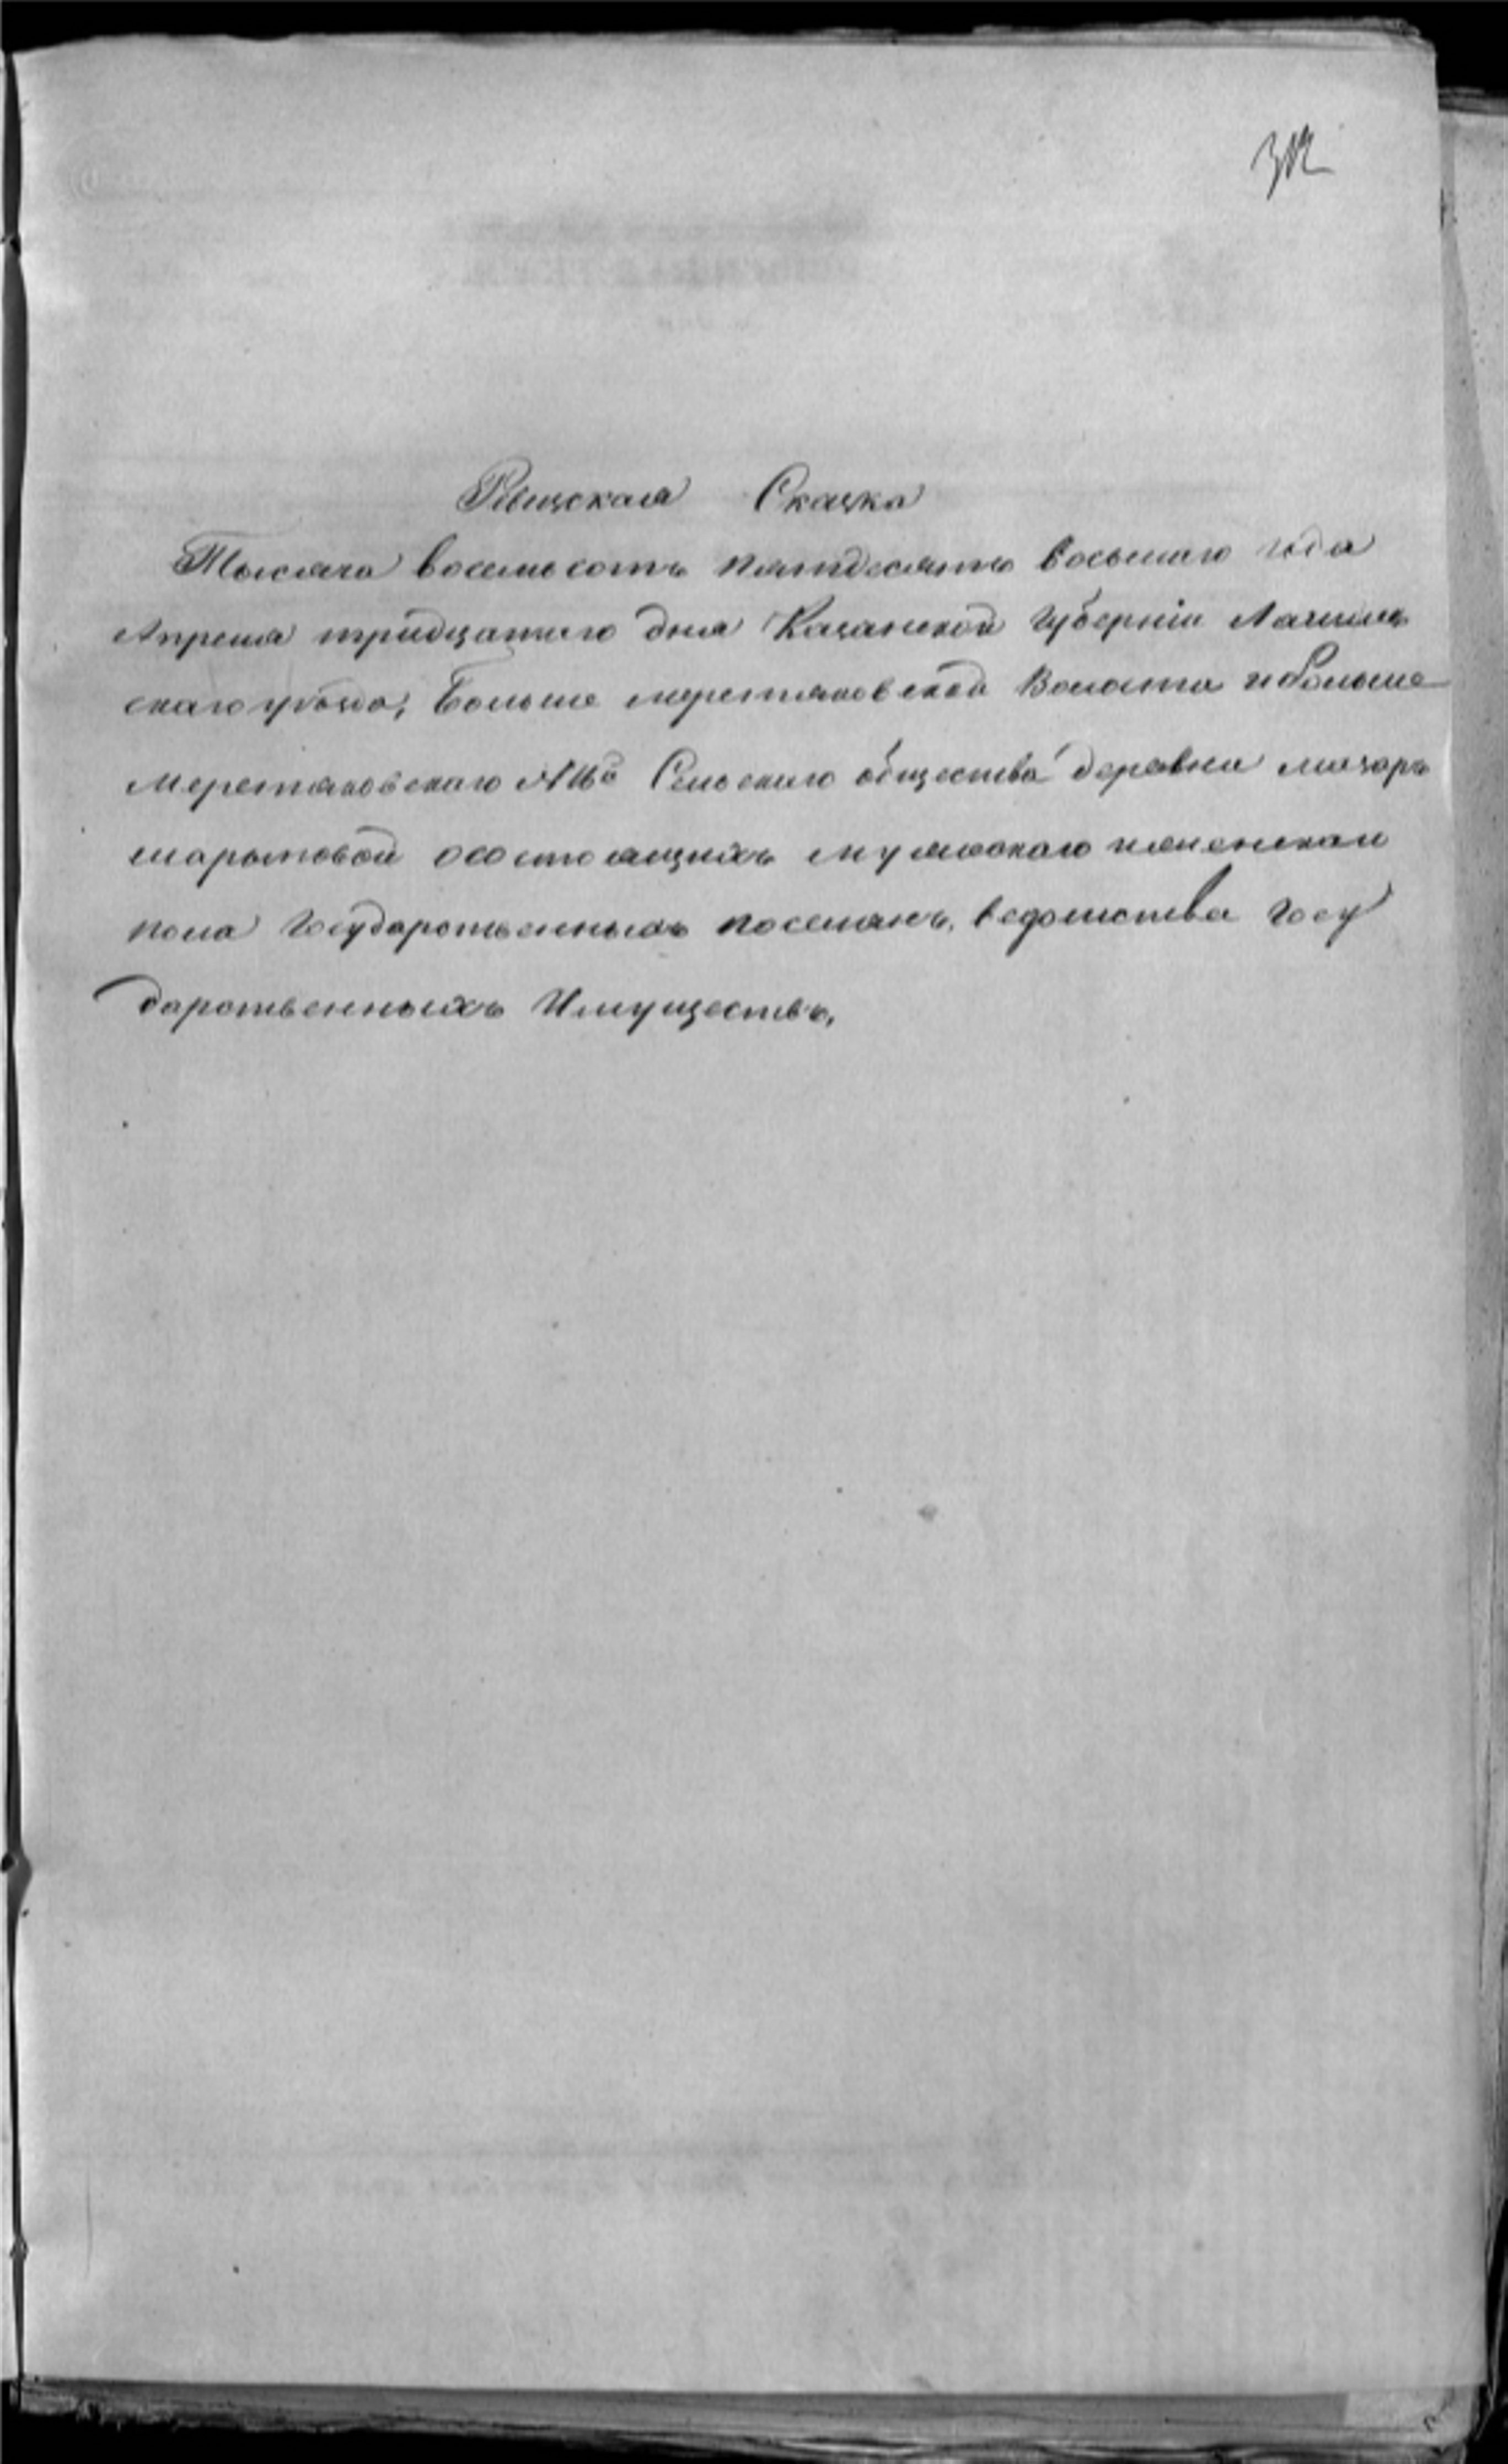 312
Ревизская Сказка
Тысяча восемьсотъ пятдесятъ восьмаго года
Апреля тридцатаго дня Казанской Губерніи Лаишев
скаго уѣзда, Больше меретяковской Волости и больше
меретяковскаго Сельскаго общества деревни
осостоящихъ мужескаго и женскаго
пола Государственныхъ поселянъ, ведомства Госу
дарственныхъ Имуществъ.